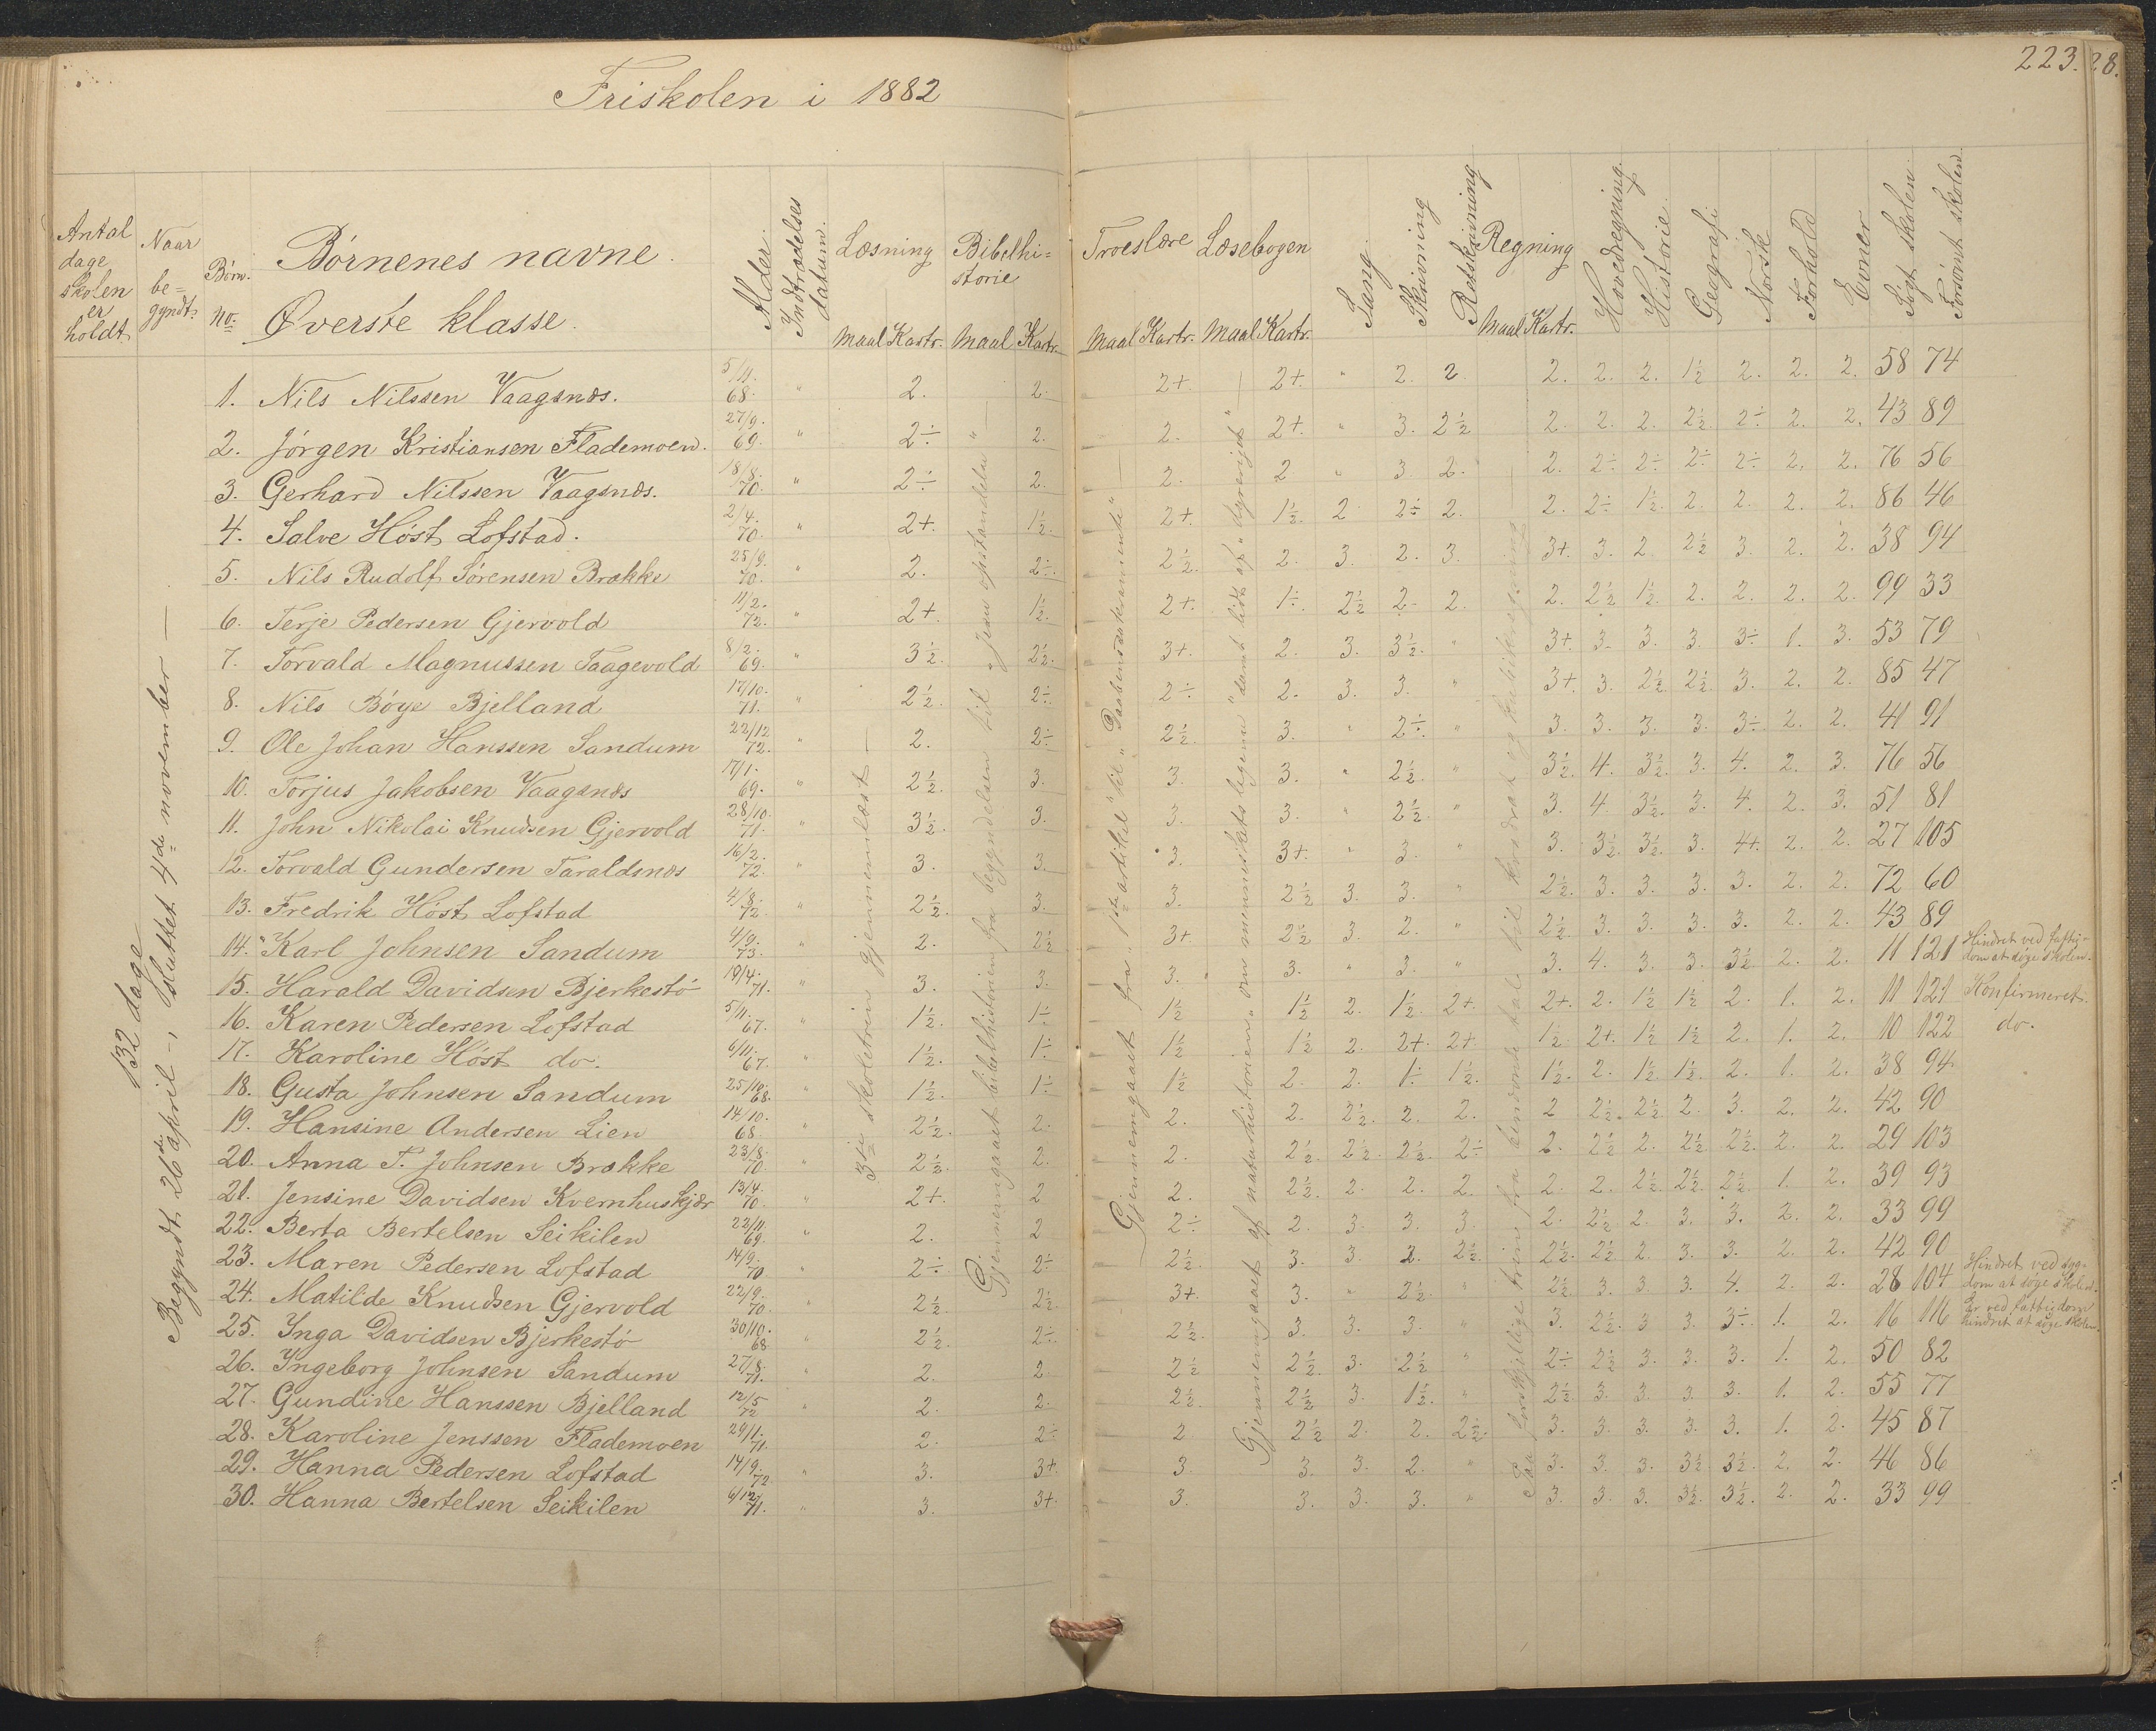 Friskolen i 1882
223. 28.
Antal dage skolen er holdt
Naar be=gyndt.
Børn. no.
Børnenes navne.
Øverste klasse.
Alder.
Indtrædelses datum.
Læsning
Bibelhi=storie
Troeslære
Læsebogen
Sang.
Skrivning
Retskrivning
Regning
Hovedregning.
Historie.
Geografi
Norsk
Forhold
Evner
Søgt skolen.
Forsømt skolen.
Maal Kartr. Maal Kartr. Maal Kartr. Maal Kartr. Maal Kartr.
132 dage
Begyndt 26de april -, sluttet 4de november —
3die skoletrin gjennemlæst —
Gjennemgaaet bibelhistorien fra begyndelsen til „Jesu opstandelse" —
Gjennemgaaet fra „1ste artikil" til „Daabens sakramente" —
Gjennemgaaet af naturhistorien „om menneskets legeme" samt lidt af „dyreriget" —
Paa forskjellige trin fra
1. Nils Nilssen Vaagsnæs. 5/11. 68. " 2. 2. 2+. 2+. " 2. 2 2. 2. 2. 1½ 2. 2. 2. 58 74
2. Jørgen Kristiansen Flademoen. 27/9. 69. " 2÷ 2. 2. 2+. " 3. 2½ 2. 2. 2. 2½. 2÷ 2. 2. 43 89
3. Gerhard Nilssen Vaagsnæs. 18/8. 70. " 2÷ 2. 2. 2. " 3. 2. 2. 2÷ 2÷ 2÷ 2÷ 2. 2. 76 56
4. Salve Høst Lofstad. 2/4. 70. " 2+. 1½. 2+. 1½. 2 2÷ 2. 2. 2÷ 1½. 2. 2. 2. 2. 86 46
5. Nils Rudolf Sørensen Brække 25/9. 70. " 2. 2÷. 2½. 2. 3. 2. 3. 3+. 3. 2 2½ 3. 2. 2. 38 94
6. Terje Pedersen Gjervold 11/2. 72. " 2+. 1½. 2+. 1÷. 2½ 2. 2. 2. 2½ 1½. 2. 2. 2. 2. 99 33
7. Torvald Magnussen Taagevold 8/2. 69. " 3½. 2½. 3+. 2. 3. 3½. " 3+. 3. 3. 3. 3÷ 1. 3. 53 79
8. Nils Bøye Bjelland 17/10. 71. " 2½. 2÷. 2÷ 2. 3. 3. " 3+. 3. 2½. 2½. 3. 2. 2. 85 47
9. Ole Johan Hanssen Sandum 22/12 72. " 2. 2÷ 2½. 3. " 2÷. " 3. 3. 3. 3. 3÷. 2. 2. 41 91
10. Torjus Jakobsen Vaagsnæs 17/1. 69. " 2½. 3. 3. 3. " 2½. " 3½. 4. 3½. 3. 4. 2. 3. 76 56
11. John Nikolai Knudsen Gjervold 28/10. 71. " 3½. 3. 3. 3. " 2½. " 3. 4. 3½. 3. 4. 2. 3. 51 81
12. Torvald Gundersen Taraldsnæs 16/2. 72. " 3. 3. 3. 3+. " 3. " 3. 3½. 3½. 3. 4+. 2. 2. 27 105
13. Fredrik Høst Lofstad 4/8. 72 " 2½. 3. 3. 2½ 3. 3. " 2½. 3. 3. 3. 3. 2. 2. 72 60
14. Karl Johnsen Sandum 4/9. 73. " 2. 2½ 3+ 2½ 3. 2. " 2½. 3. 3. 3. 3. 2. 2. 43 89
15. Harald Davidsen Bjerkestø 19/4. 71. " 3. 3. 3. 3. " 3. " 3. 4. 3. 3. 3½ 2. 2. 11 121 Hindret ved fattig=dom at søge skolen.
16. Karen Pedersen Lofstad 5/11. 67. " 1½. 1÷ 1½ 1½ 2. 1½ 2+. 2+. 2. 1½ 1½ 2. 1. 2. 11 121 Konfirmeret.
17. Karoline Høst do. 6/11. 67. " 1½. 1÷ 1½ 1½ 2. 2+. 2+. 1½. 2+. 1½ 1½ 2. 1. 2. 10 122 do.
18. Gusta Johnsen Sandum 25/10. 68. " 1½. 1÷ 1½ 2. 2. 1÷ 1½. 1½. 2. 1½. 1½. 2. 1. 2. 38 94
19. Hansine Andersen Lien 14/10. 68. " 2½. 2. 2. 2. 2½. 2. 2. 2 2½. 2½. 2. 3. 2. 2. 42 90
20. Anna T. Johnsen Brække 23/8. 70. " 2½. 2. 2. 2½. 2½. 2½. 2÷ 2. 2½ 2. 2½ 2½. 2. 2. 29 103
21. Jensine Davidsen Kvernhuskjær 13/4. 70. " 2+. 2 2. 2½. 2. 2. 2. 2. 2. 2½ 2½. 2½. 1. 2. 39 93
22. Berta Bertelsen Seikilen 22/11. 69 " 2. 2 2÷ 2. 3. 3. 3. 2. 2½ 2. 3. 3. 2. 2. 33 99
23. Maren Pedersen Lofstad 14/9. 70 " 2÷. 2÷ 2½. 3. 3. 2. 2½. 2½. 2½. 2. 3. 3. 2. 2. 42 90
24. Matilde Knudsen Gjervold 22/9. 70. " 2½. 2½. 3+. 3. " 2½. " 2½ 3. 3. 3. 4. 2. 2. 28 104 Hindret ved syg=dom at søge skolen.
25. Inga Davidsen Bjerkestø 30/10. 68 " 2½. 2÷. 2½. 3. 3. 3. " 3. 2½. 3 3. 3÷. 1. 2. 16 116 Er ved fattigdom hindret at søge skolen.
26. Ingeborg Johnsen Sandum 27/8. 71. " 2. 2. 2½ 2½. 3. 2½ " 2÷ 2½ 3. 3. 3. 1. 2. 50 82
27. Gundine Hanssen Bjelland 12/5 72 " 2. 2. 2½. 2½ 3. 1½. " 2½. 3. 3. 3. 3. 1. 2. 55 77
28. Karoline Jenssen Flademoen 29/1. 71. 2. 2÷ 2. 2½ 2. 2. 2½. 3. 3. 3. 3. 3. 1. 2. 45 87
29. Hanna Pedersen Lofstad 14/9. 72 " 3. 3+. 3. 3. 3. 2. " 3. 3. 3. 3½ 3½. 2. 2. 46 86
30. Hanna Bertelsen Seikilen 6/12. 71. " 3. 3+. 3. 3. 3. 3. " 3. 3. 3. 3½. 3½. 2. 2. 33 99